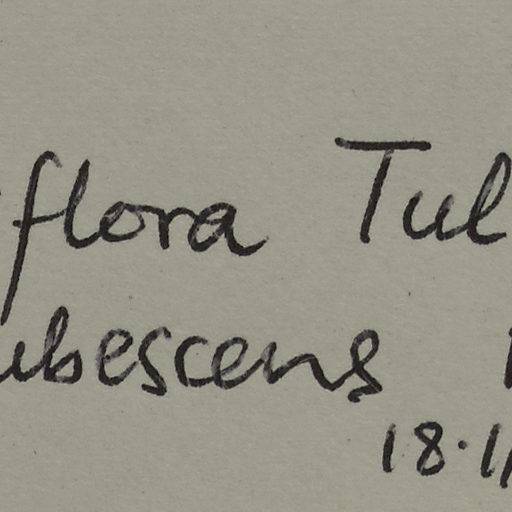 flora Tul
ubescens
18.1